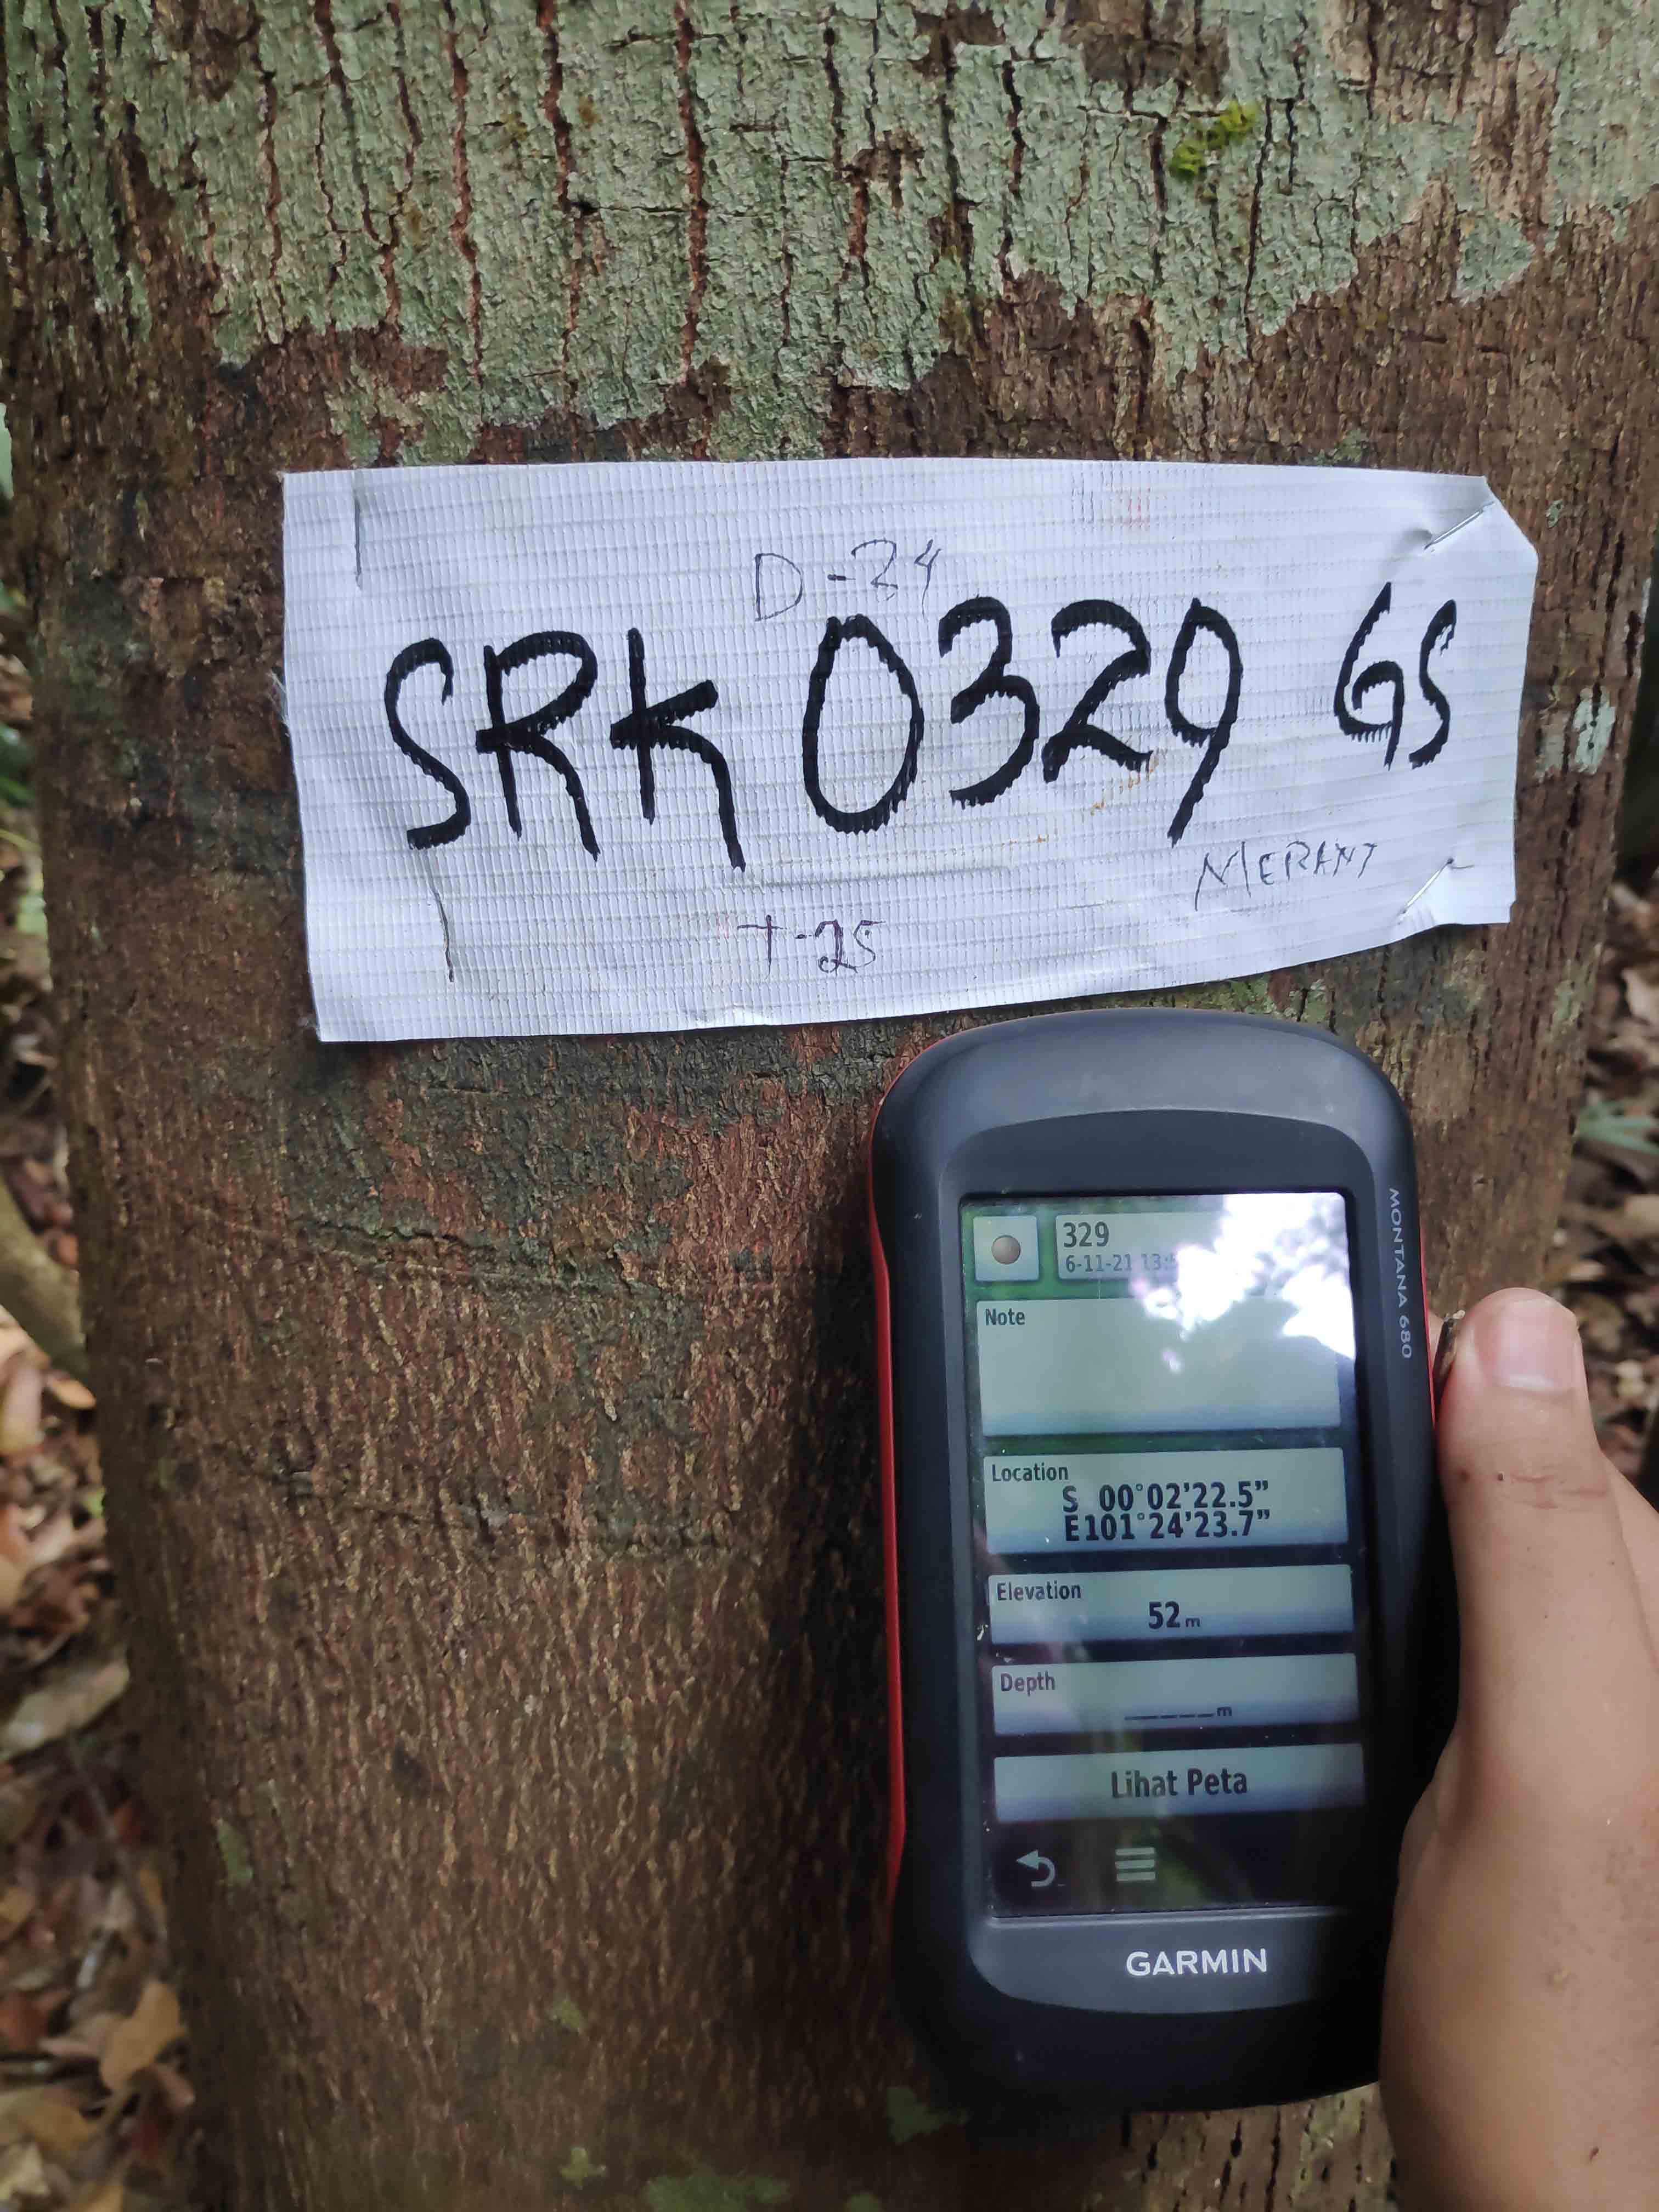 D-34
SRK 0329 GS
MERANT
T-25
MONTANA 680
329
6-11-21 13:
Note
Location
S 00°02'22.5"
E101°24'23.7"
Elevation
52 m
Depth
_____m
Lihat Peta
GARMIN